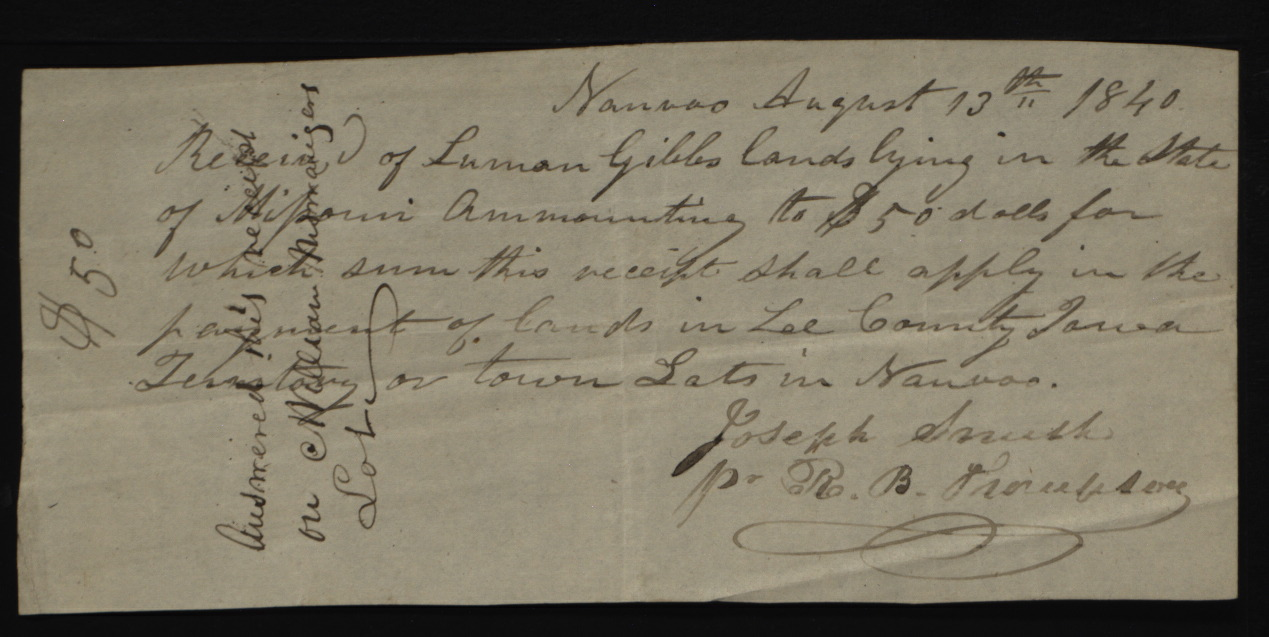 Nauvoo August 13th 1840.
Received of Luman Gibbs lands lying in the State
of Missouri Ammounting to $50 dolls for
which sum this receipt shall apply in the
payment of lands in Lee County Iowa
Territory or town Lots in Nauvoo.
Joseph Smith
pr R. B. Thompson
$50
Answered in his receipt
on William Niswangers
Lot